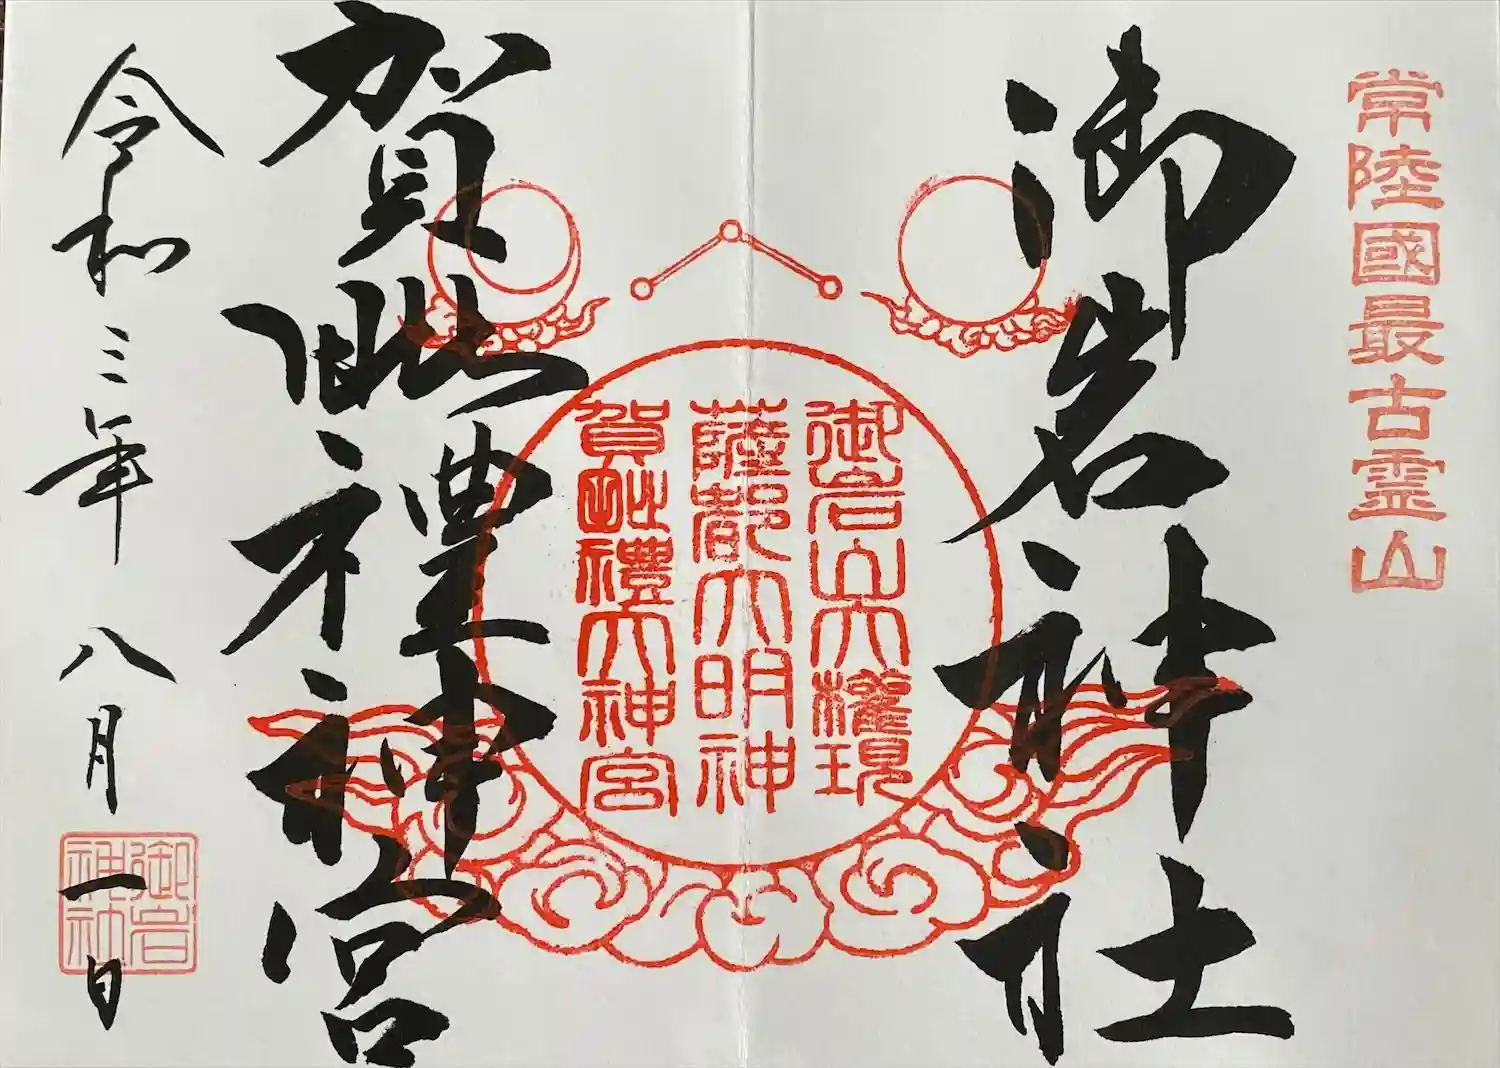 常陸國最古霊山
御岩神社
御岩山大權現
薩都大明神
賀毗禮大神宮
賀毗禮神宮
令和三年八月一日
御岩
神社